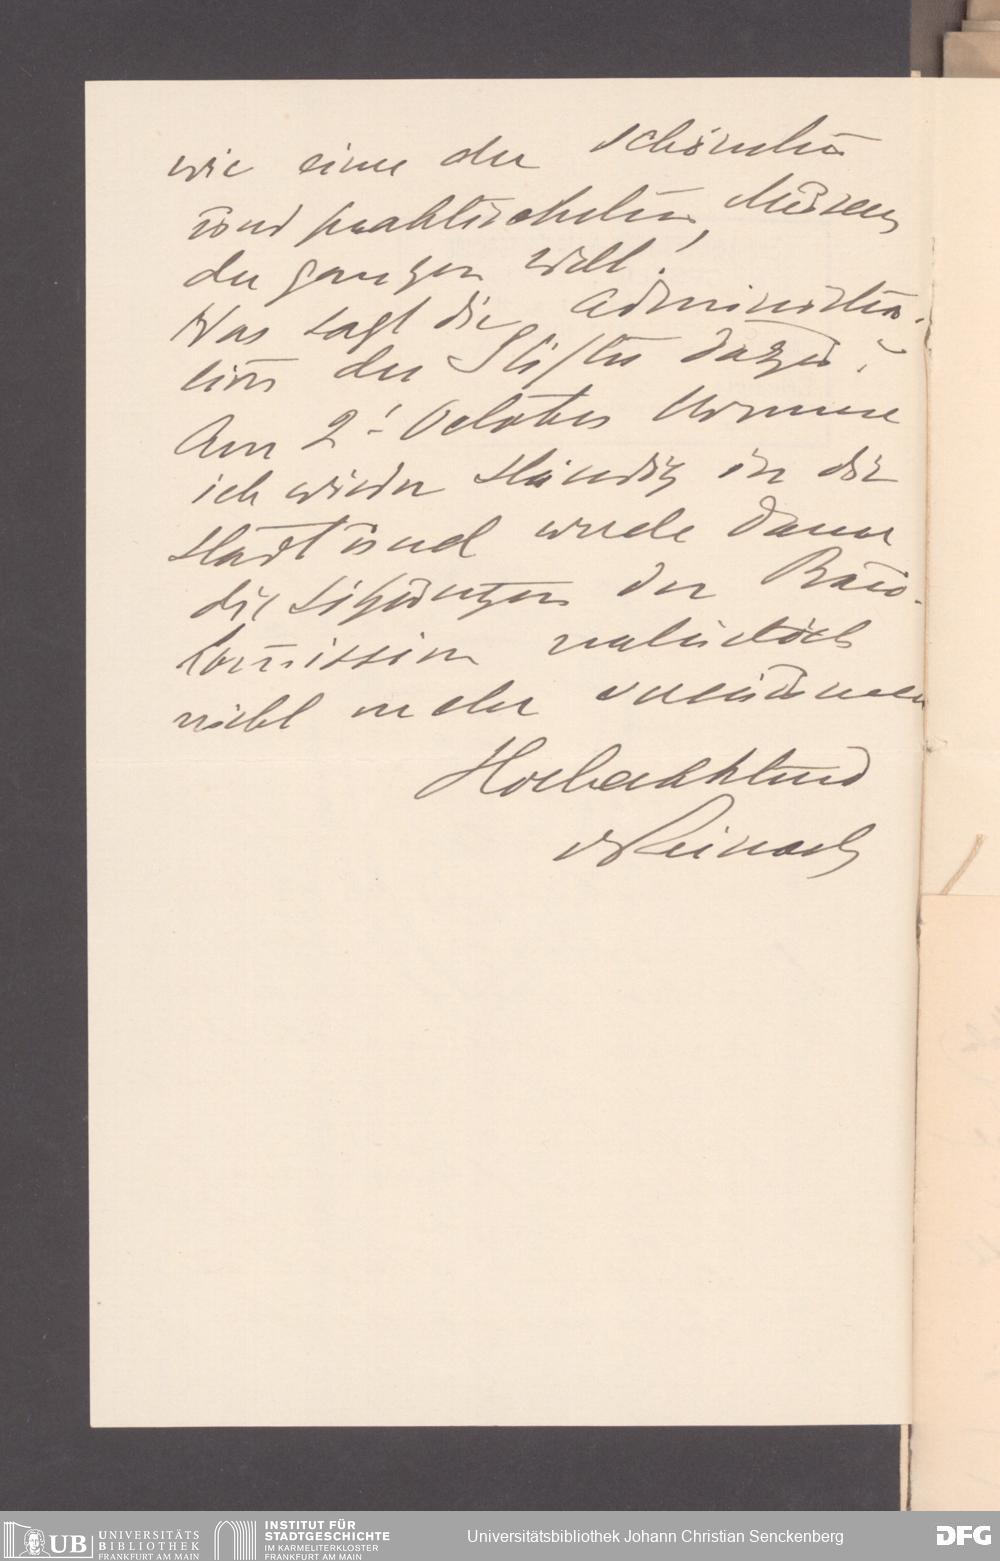 wie eines der schönsten
und praktischsten, Museen
der ganzen Welt!
Was sagt die Administra-
tion des Stiftes dazu?
Am 2! October komme
ich wieder ständig in die
Stadt und werde dann
die Sitzungen der Bau-
Commission natürlich
nicht mehr versäumen
Hochachtend
vReinach
UB UNIVERSITÄTS
BIBLIOTHEK
FRANKFURT AM MAIN
INSTITUT FÜR
STADTGESCHICHTE
IM KARMELITERKLOSTER
FRANKFURT AM MAIN
Universitätsbibliothek Johann Christian Senckenberg
DFG